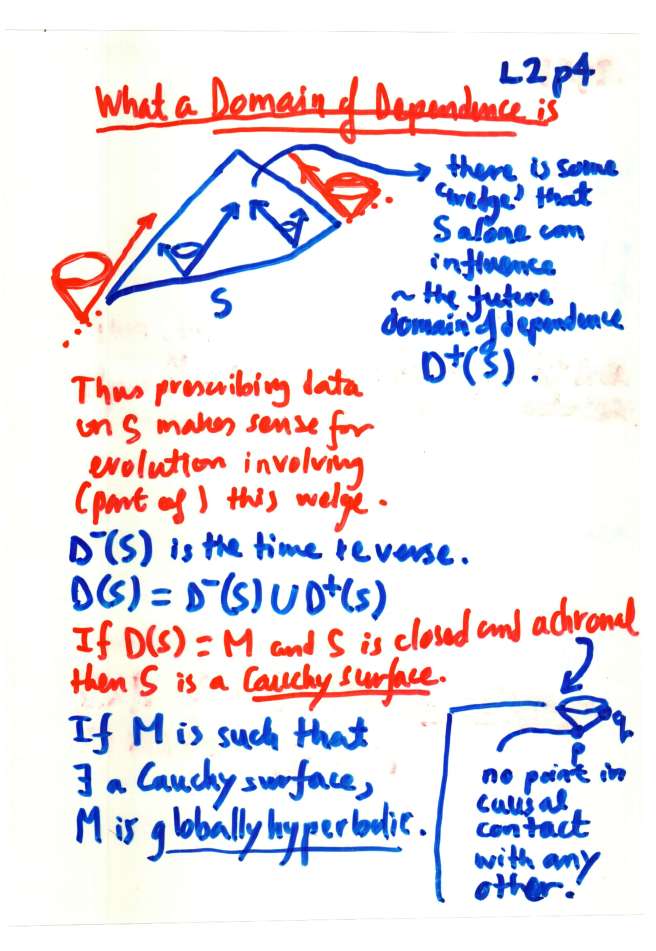 L2 p4
What a Domain of Dependence is
there is some
'wedge' that
S alone can
influence
~ the future
domain of dependence
D⁺(S).
S
Thus prescribing data
on S makes sense for
evolution involving
(part of) this wedge.
D⁻(S) is the time reverse.
D(S) = D⁻(S) ∪ D⁺(S)
If D(S) = M and S is closed and achronal
then S is a Cauchy surface.
If M is such that
∃ a Cauchy surface,
M is globally hyperbolic.
q
p
no point in
causal
contact
with any
other.